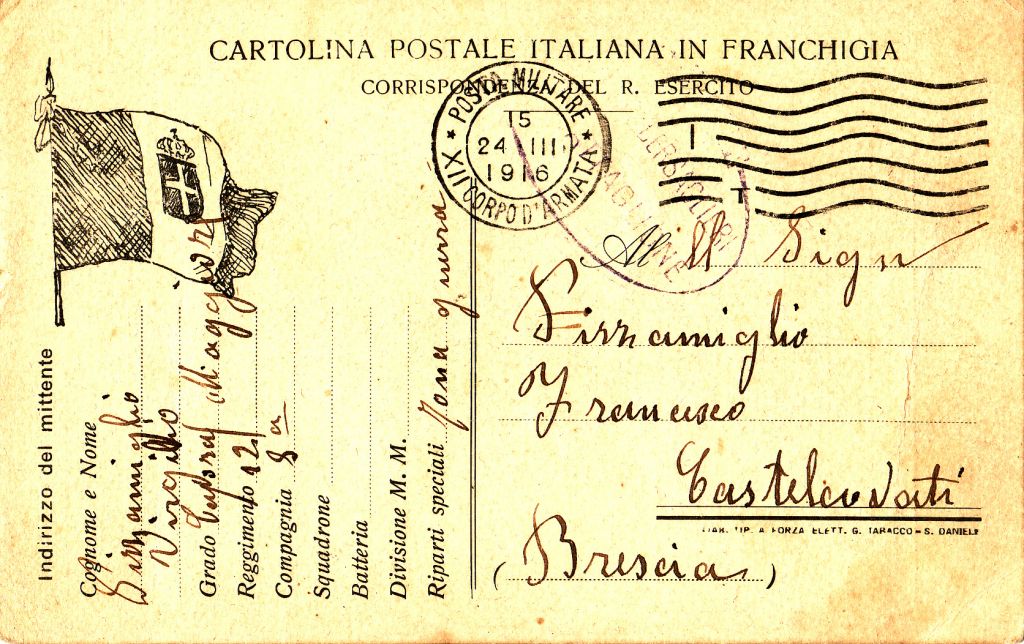 CARTOLINA POSTALE ITALIANA IN FRANCHIGIA
CORRISPONDENZA DEL R. ESERCITO
★ POSTA MILITARE ★
15
24 III
1916
XII CORPO D'ARMATA
I
T
BERSAGLIERI
Al Il Sign
Pizzamiglio
Francesco
Castelcovati
STAB. TIP. A FORZA ELETT. G. TABACCO - S. DANIELE
(Brescia)
Indirizzo del mittente
Cognome e Nome Pizzamiglio
Virgilio
Grado Caporal Maggiore
Reggimento 12
Compagnia 8a
Squadrone
Batteria
Divisione M. M.
Riparti speciali Zona guerra